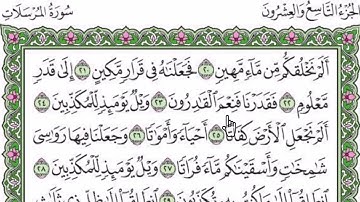 الجزء التاسع والعشرون
سورة المرسلات
ألم نخلقكم من ماء مهين ٢٠ فجعلناه في قرار مكين ٢١ إلى قدر
معلوم ٢٢ فقدرنا فنعم القادرون ٢٣ ويل يومئذ للمكذبين ٢٤
ألم نجعل الأرض كفاتا ٢٥ أحياء وأمواتا ٢٦ وجعلنا فيها رواسي
شامخات وأسقيناكم ماء فراتا ٢٧ ويل يومئذ للمكذبين ٢٨